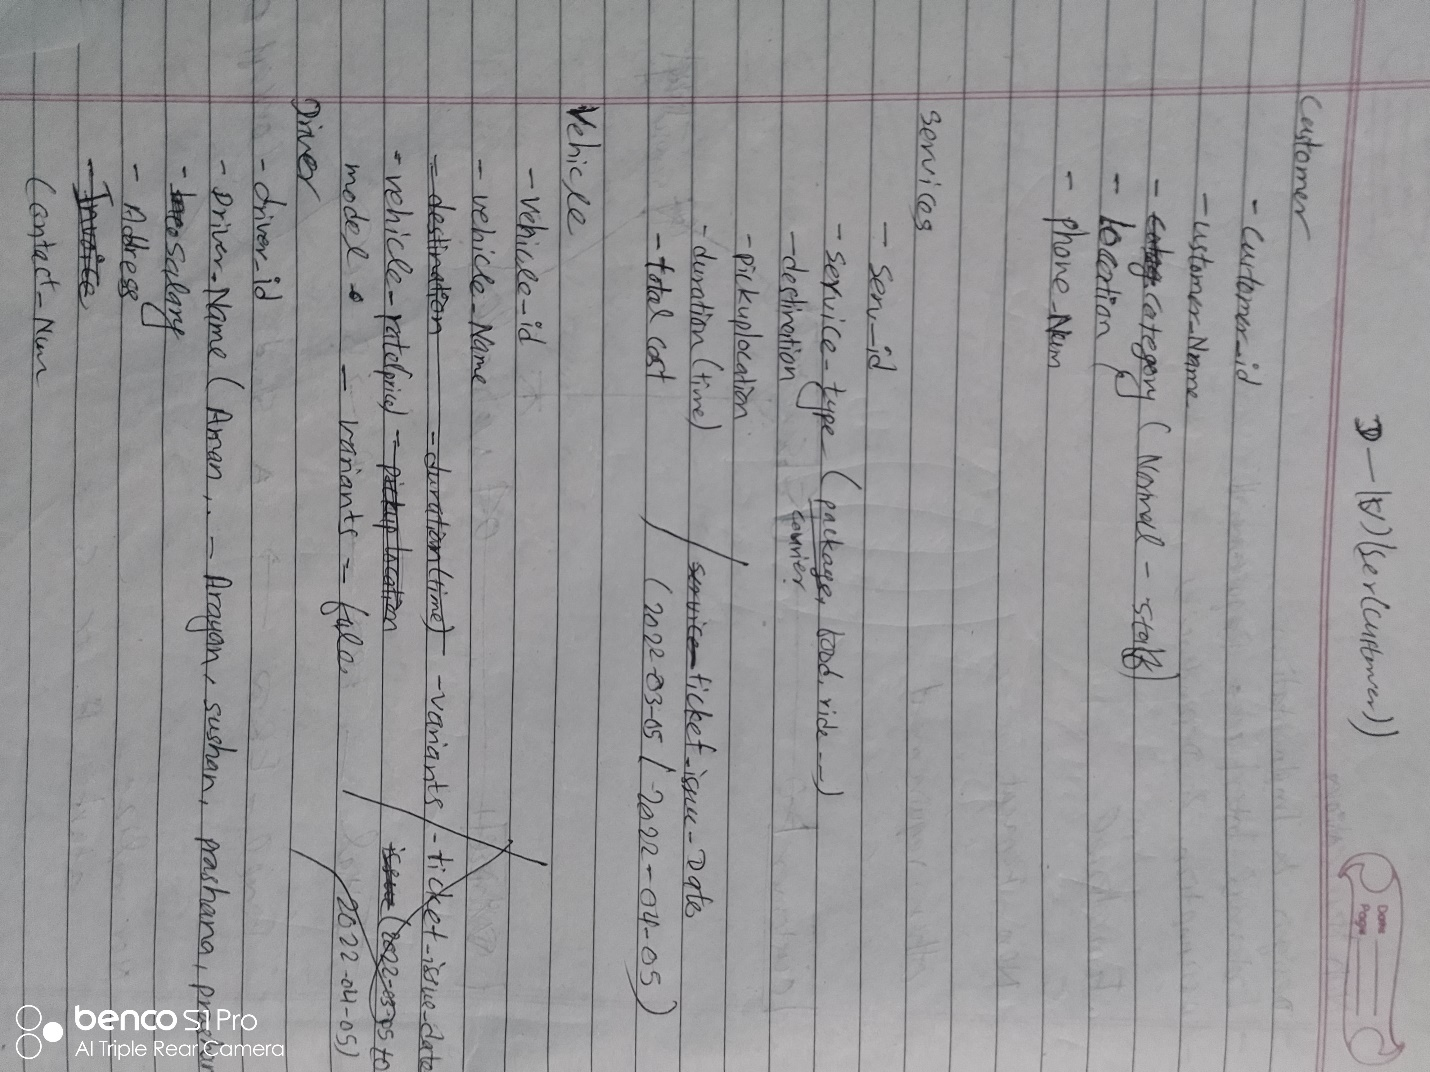 D—(V)(ser(customer))
Date
Page
Customer
- Curtomer_id
- Customer_Name
- category (Normal - staff)
- location
- phone_Num
Services
- Serv_id
- service_type (package, food, ride ---)
courier
- destination
- pickuplocation
- duration (time) service ticket_issue_Date
- total cost (2022-03-05 / 2022-04-05)
Vehicle
- vehicle_id
- vehicle_Name
- destination - duration(time) - variants - ticket_issue_date
- vehicle_rate(price) - pickup location issue (2022-03-05 to
model - variants - 2022-04-05)
Driver
- driver_id
- Driver_Name (Aman, - Arayan, sushan, prashana,
- salary
- Address
- Invoice
Contact_Num
benco S1 Pro
AI Triple Rear Camera